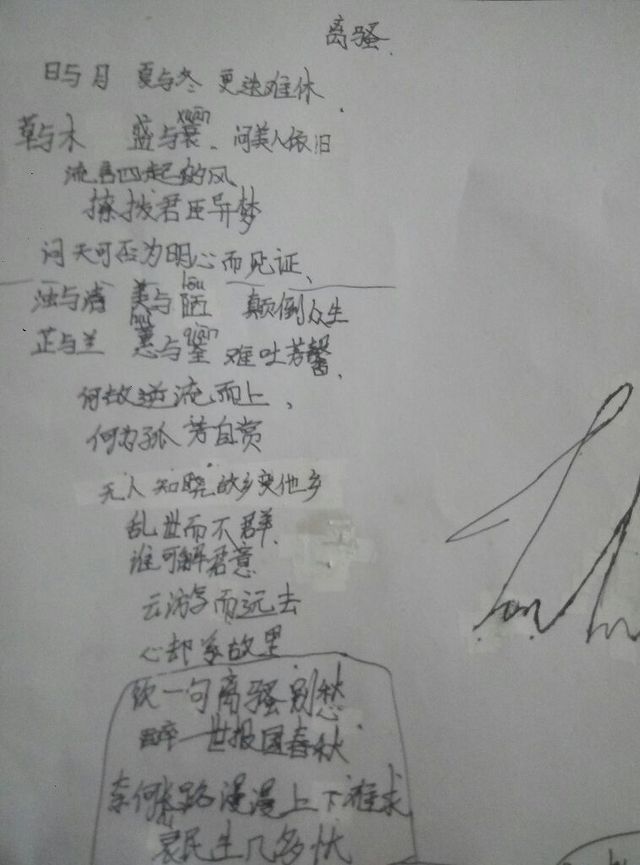 离骚
日与月 夏与冬 更迭难休
xuān
草与木 盛与衰、问美人依旧
流言四起的风
撩拨君臣异梦
问天可否为明心而见证、
lòu
浊与清 美与陋 颠倒众生
huì quán
芷与兰 蕙与荃 难吐芳馨
何故逆流而上、
何为孤芳自赏
无人知晓故乡变他乡
乱世而不群
谁可解君意
云游而远去
心却系故里
饮一句离骚别愁
醉一世报国春秋
奈何长路漫漫上下难求
哀民生几多忧